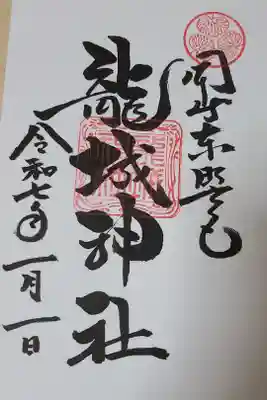 岡崎東照宮
龍城神社
令和七年
一月一日